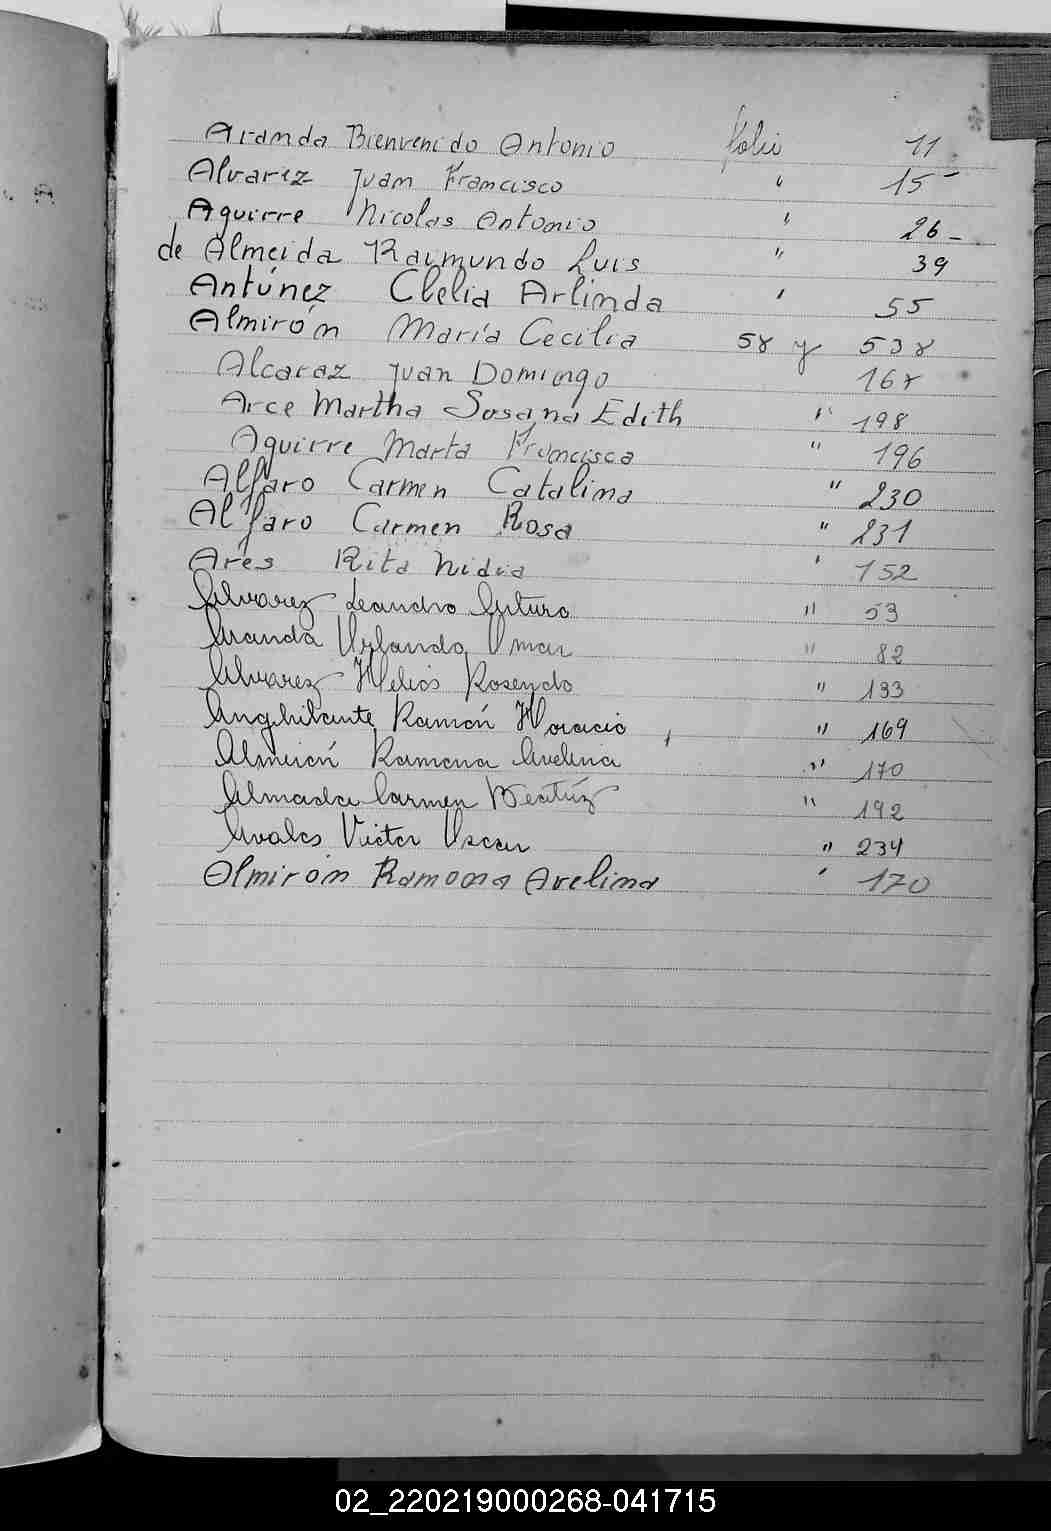 Aranda Bienvenido Antonio folio 11
Alvarez Juan Francisco " 15-
Aguirre Nicolas Antonio " 26-
de Almeida Raimundo Luis " 39
Antúnez Clelia Arlinda " 55
Almirón María Cecilia 58 y 538
Alcaraz Juan Domingo 168
Arce Martha Susana Edith " 198
Aguirre Marta Francisca " 196
Alfaro Carmen Catalina " 230
Alfaro Carmen Rosa " 231
Ares Rita Nidia " 152
Alvarez Leandro Arturo " 53
Aranda Orlando Omar " 82
Alvarez Helios Rosendo " 133
Anghilante Ramón Horacio " 169
Almirón Ramona Avelina " 170
Almada Carmen Beatríz " 192
Avalos Victor Oscar " 234
Almirón Ramona Avelina " 170
02_220219000268-041715